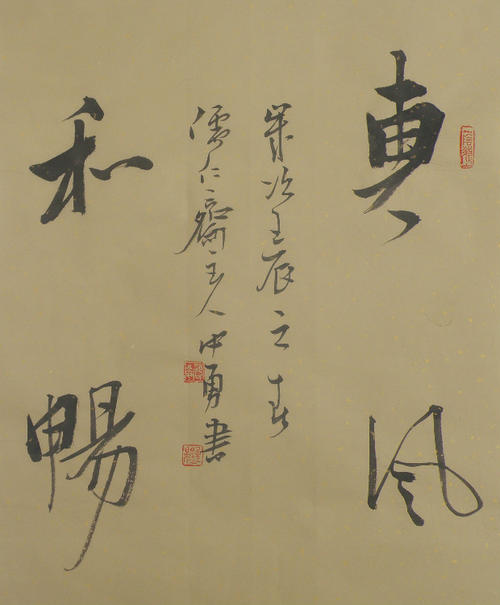 惠風
和暢
歲次壬辰之春
儒仁齋主人中勇書